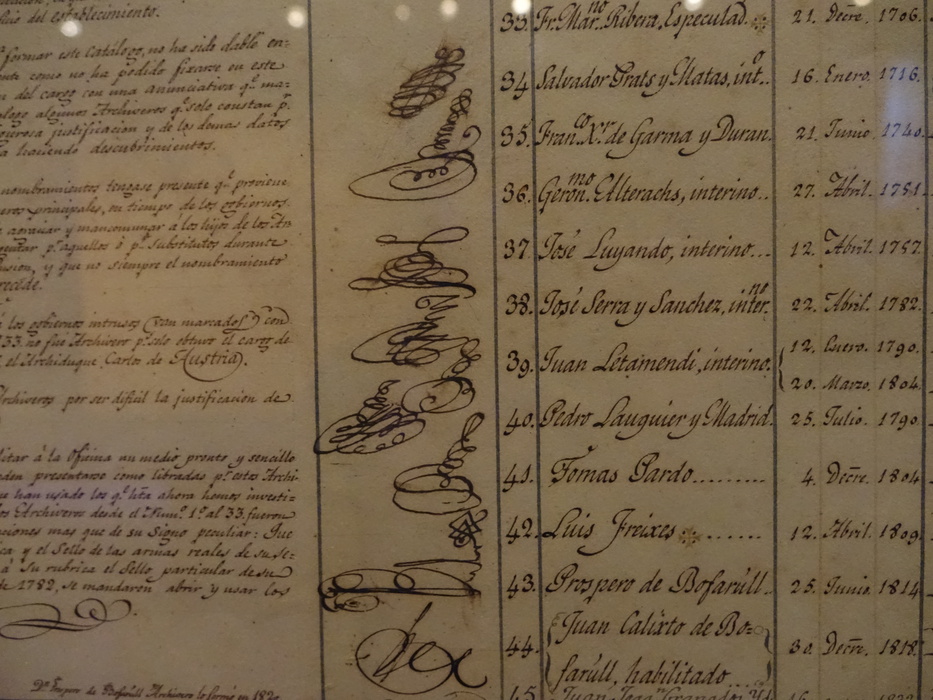 fio del establecimiento.
formar este Catálogo, no ha sido dable en=
nte como no ha podido fixarse en este
n del cargo con una anunciativa q.e ma=
logo algunos Archiveros q.e solo constan p.r
justificacion y de los demas datos
a haciendo descubrimientos.
nombramientos tengase presente q.e proviene
eros principales, en tiempo de los gobiernos
aonivar y mancomunar á los hijos de los An
p.r aquellos ó p.r substitutos durante
usion, y que no siempre el nombramiento
recede.
á los gobiernos intrusos (van marcados) con
33. no fue Archivero p.s solo obtuvo el cargo de
el Archiduque Carlos de Austria).
Archiveros por ser dificil la justificacion de
litar á la Oficina un medio pronto y sencillo
eden presentarse como libradas p.r estos Archi-
ue han usado los q.e hta ahora hemos investi=
los Archiveros desde el Num.o 1.o al 33. fueron
aciones mas que de su Signo peculiar: Que
ca y el Sello de las armas reales de su Se=
á su rubrica el Sello particular de su
de 1782, se mandaron abrir y usar los
D.n Prospero de Bofarull Archivero lo formó en 182
33. Fr. Mar.no Ribera, Especulad. 21. Decre. 1706.
34. Salvador Prats y Matas, int.o 16. Enero. 1716.
35. Fran.co X.r de Garma y Duran. 21. Junio. 1740.
36. Geron.mo Alterachs, interino.. 27. Abril. 1751.
37. José Luyando, interino... 12. Abril. 1757.
38. José Serra y Sanchez, inter.no 22. Abril. 1782.
39. Juan Letamendi, interino. { 12. Enero. 1790.
20. Marzo. 1804.
40. Pedro Lauguier y Madrid. 25. Julio. 1790.
41. Tomas Pardo......... 4. Decre. 1804
42. Luis Freixes ...... 12. Abril. 1809.
43. Prospero de Bofarúll.. 25. Junio. 1814.
44. { Juan Calixto de Bo=
farúll, habilitado... } 30. Decre. 1818.
45.